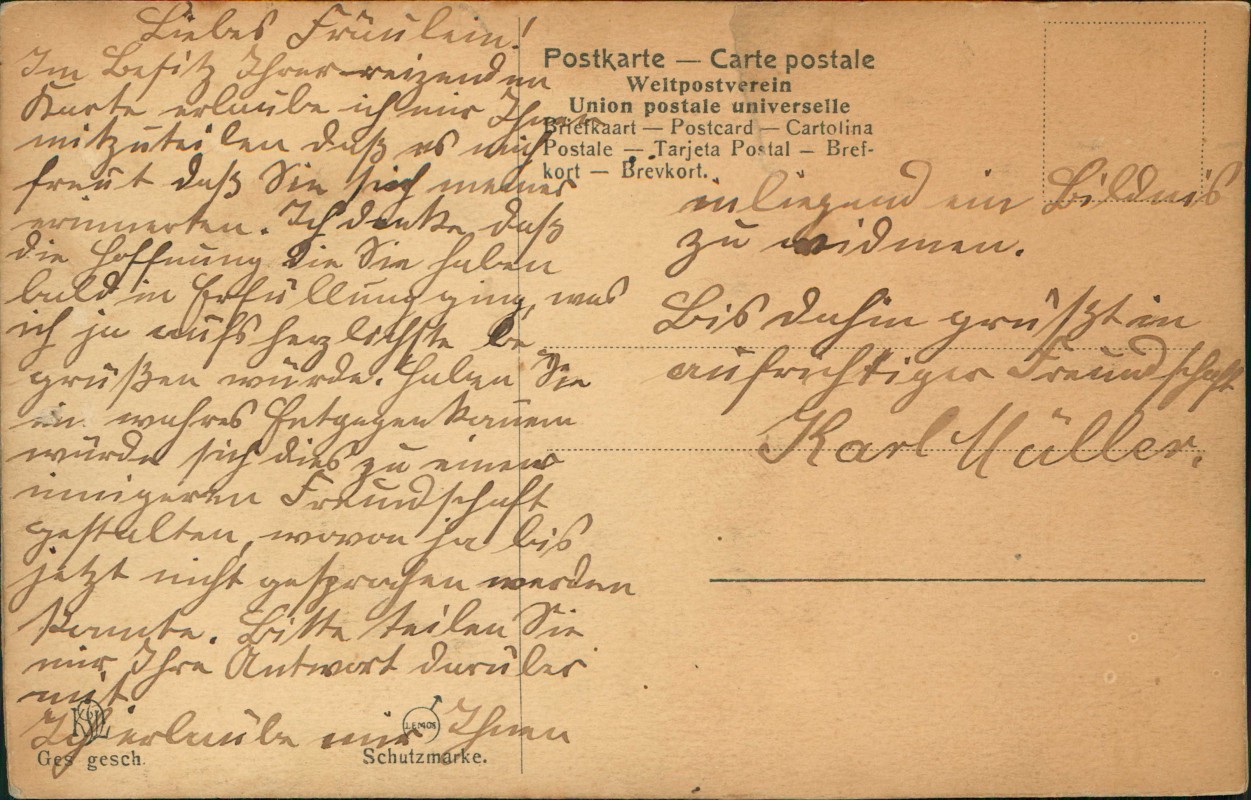 Liebes Fräulein!
Im Besitz Ihrer reizenden
Karte erlaube ich mir Ihnen
mitzuteilen daß es mich
freut daß Sie sich meiner
erinnerten. Ich denke, daß
die Hoffnung die Sie haben
bald in Erfüllung ging, was
ich ja aufs herzlichste be
grüßen würde. Haben Sie
ein wahres
würde sich dies zu einer
innigeren Freundschaft
gestalten, wovon ja bis
jetzt nicht gesprochen werden
konnte. Bitte teilen Sie
mir Ihre Antwort darüber
mit
Ich erlaube mir Ihnen
Ges gesch.
LEMOS
Schutzmarke.
Postkarte — Carte postale
Weltpostverein
Union postale universelle
Briefkaart — Postcard — Cartolina
Postale — Tarjeta Postal — Bref-
kort — Brevkort.
inliegend ein Bildnis
zu widmen.
Bis dahin grüßt in
aufrichtiger Freundschaft
Karl Müller.